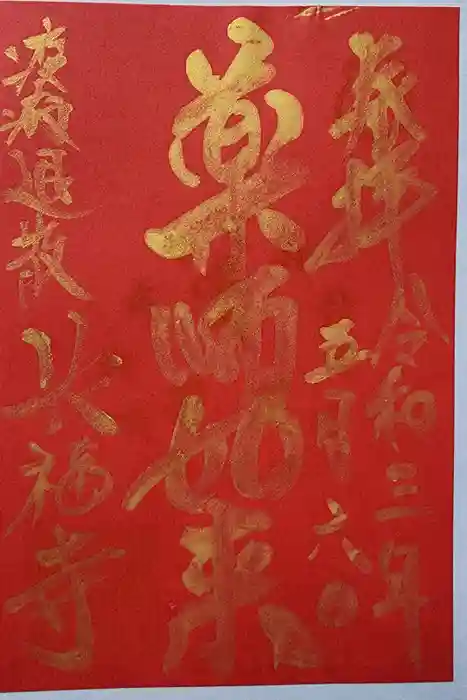 奉拝 令和三年
五月六日
薬師如来
疫病退散 福寺